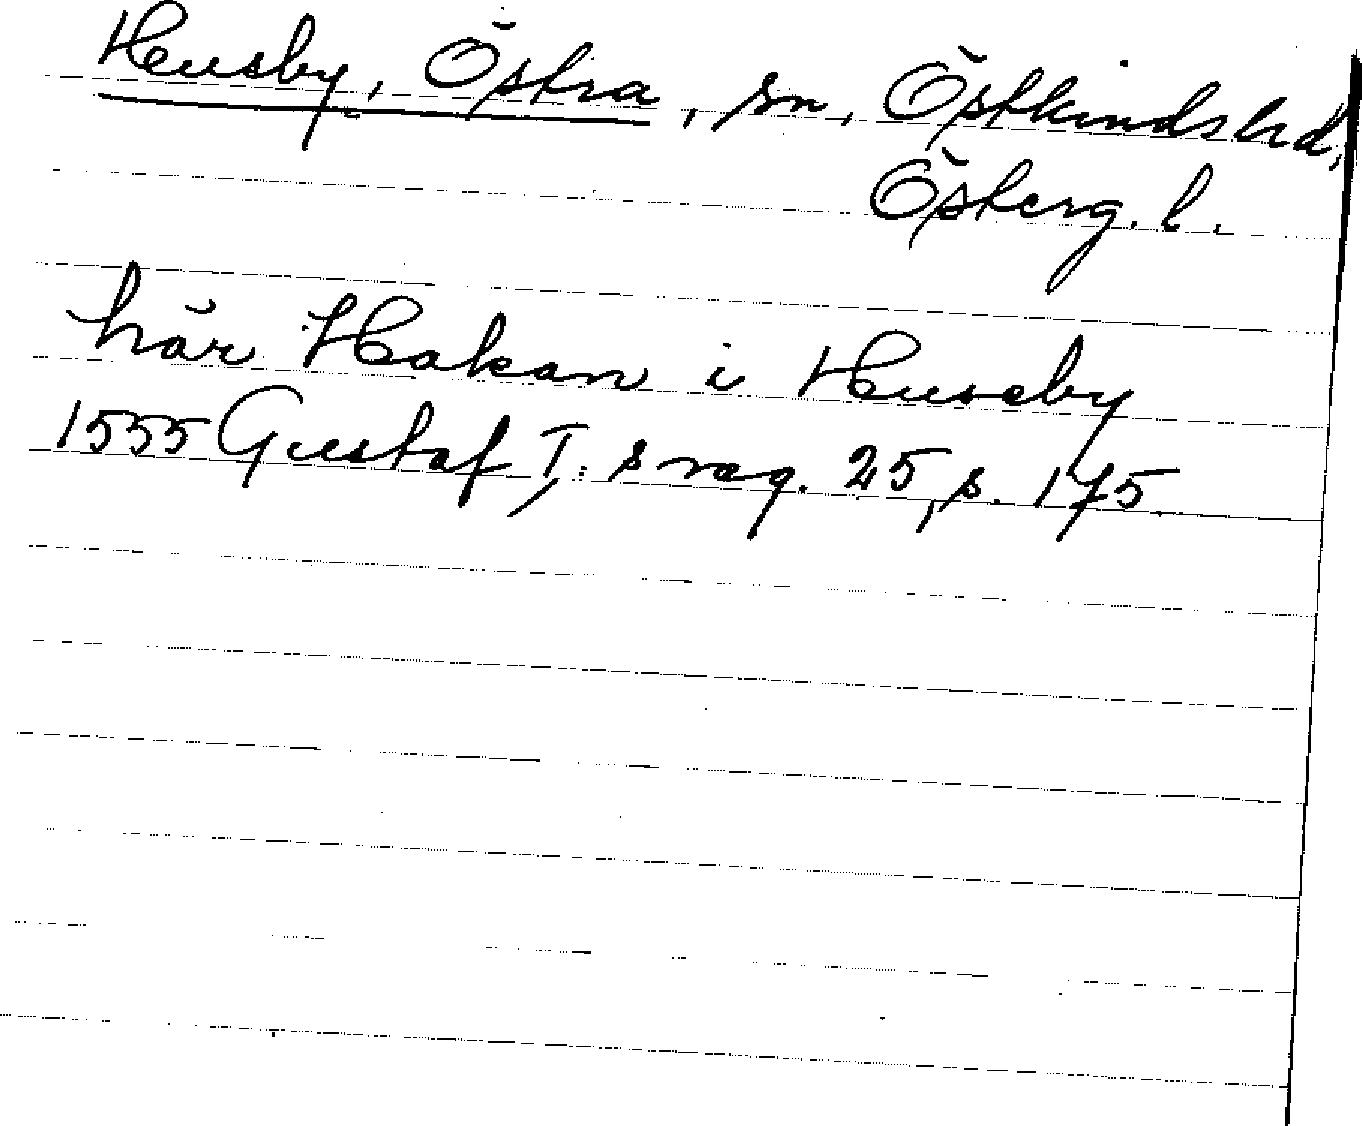 Husby, Östra, sn, Östkinds hd,
Österg. l.
här Hakan i Huseby
1555 Gustaf I:s reg. 25, s. 175